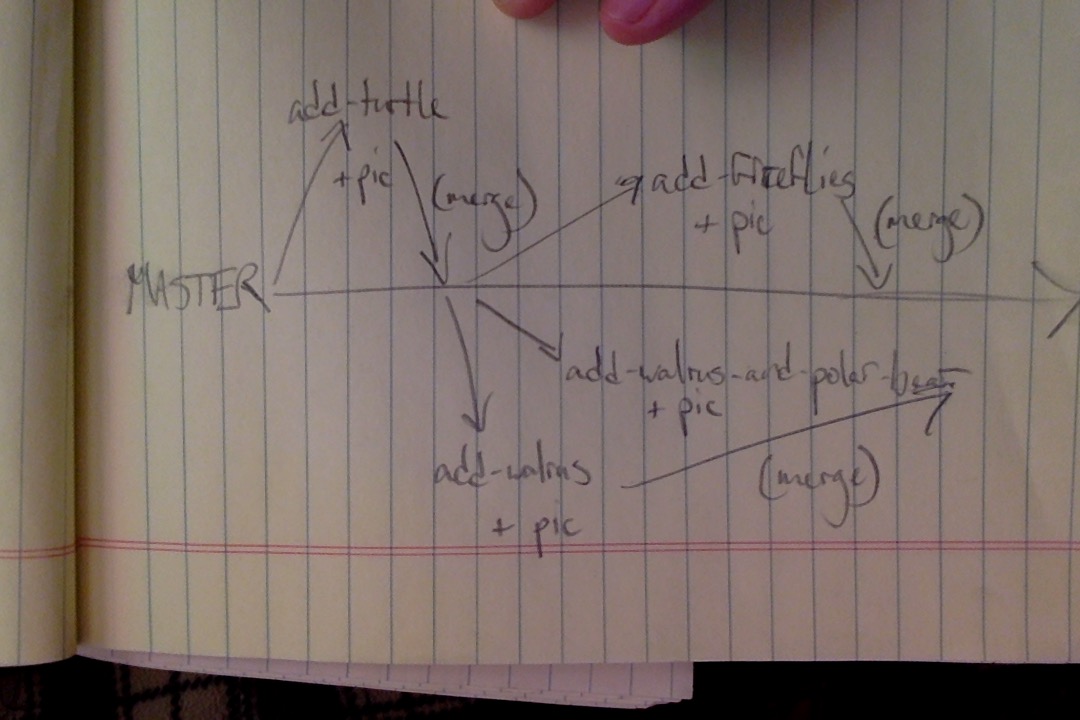 add-turtle
+ pic
(merge)
add-fireflies
+ pic
(merge)
MASTER
add-walrus-and-polar-bear
+ pic
add-walrus
+ pic
(merge)